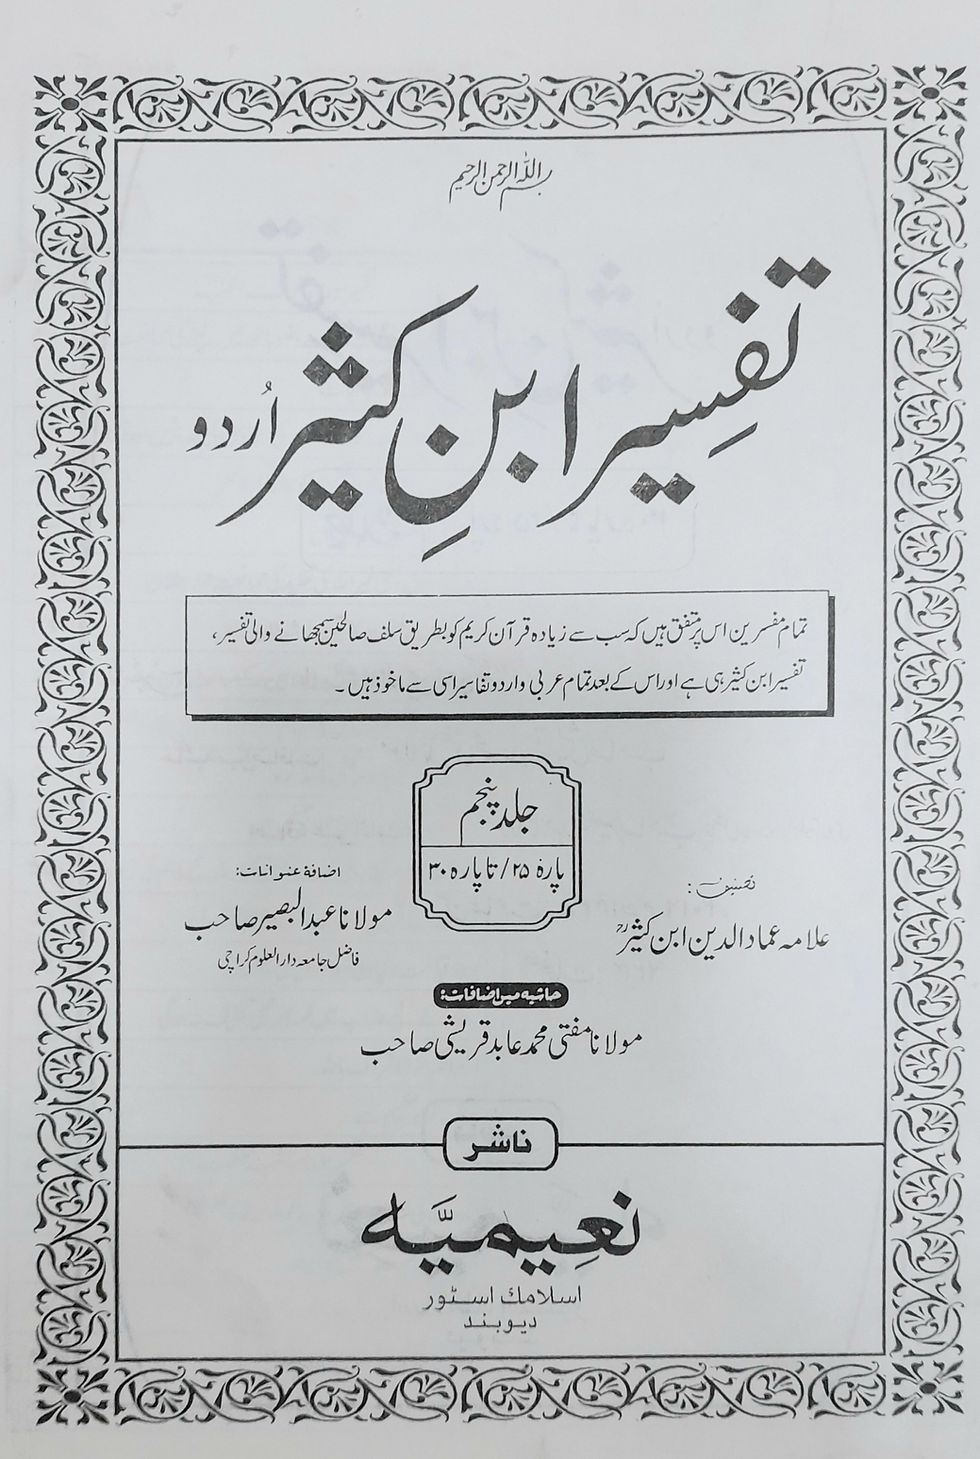 بسم اللہ الرحمن الرحیم
تفسیر ابنِ کثیر اُردو
تمام مفسرین اس پر متفق ہیں کہ سب سے زیادہ قرآن کریم کو بطریق سلف صالحین سمجھانے والی تفسیر،
تفسیر ابن کثیر ہی ہے اور اس کے بعد تمام عربی و اردو تفاسیر اسی سے ماخوذ ہیں۔
جلد پنجم
پارہ ۲۵/ تا پارہ ۳۰
تصنیف:
علامہ عماد الدین ابن کثیرؒ
اضافۂ عنوانات:
مولانا عبد البصیر صاحب
فاضل جامعہ دار العلوم کراچی
حاشیہ میں اضافات:
مولانا مفتی محمد عابد قریشی صاحب
ناشر
نعیمیہ
اسلامک اسٹور
دیوبند